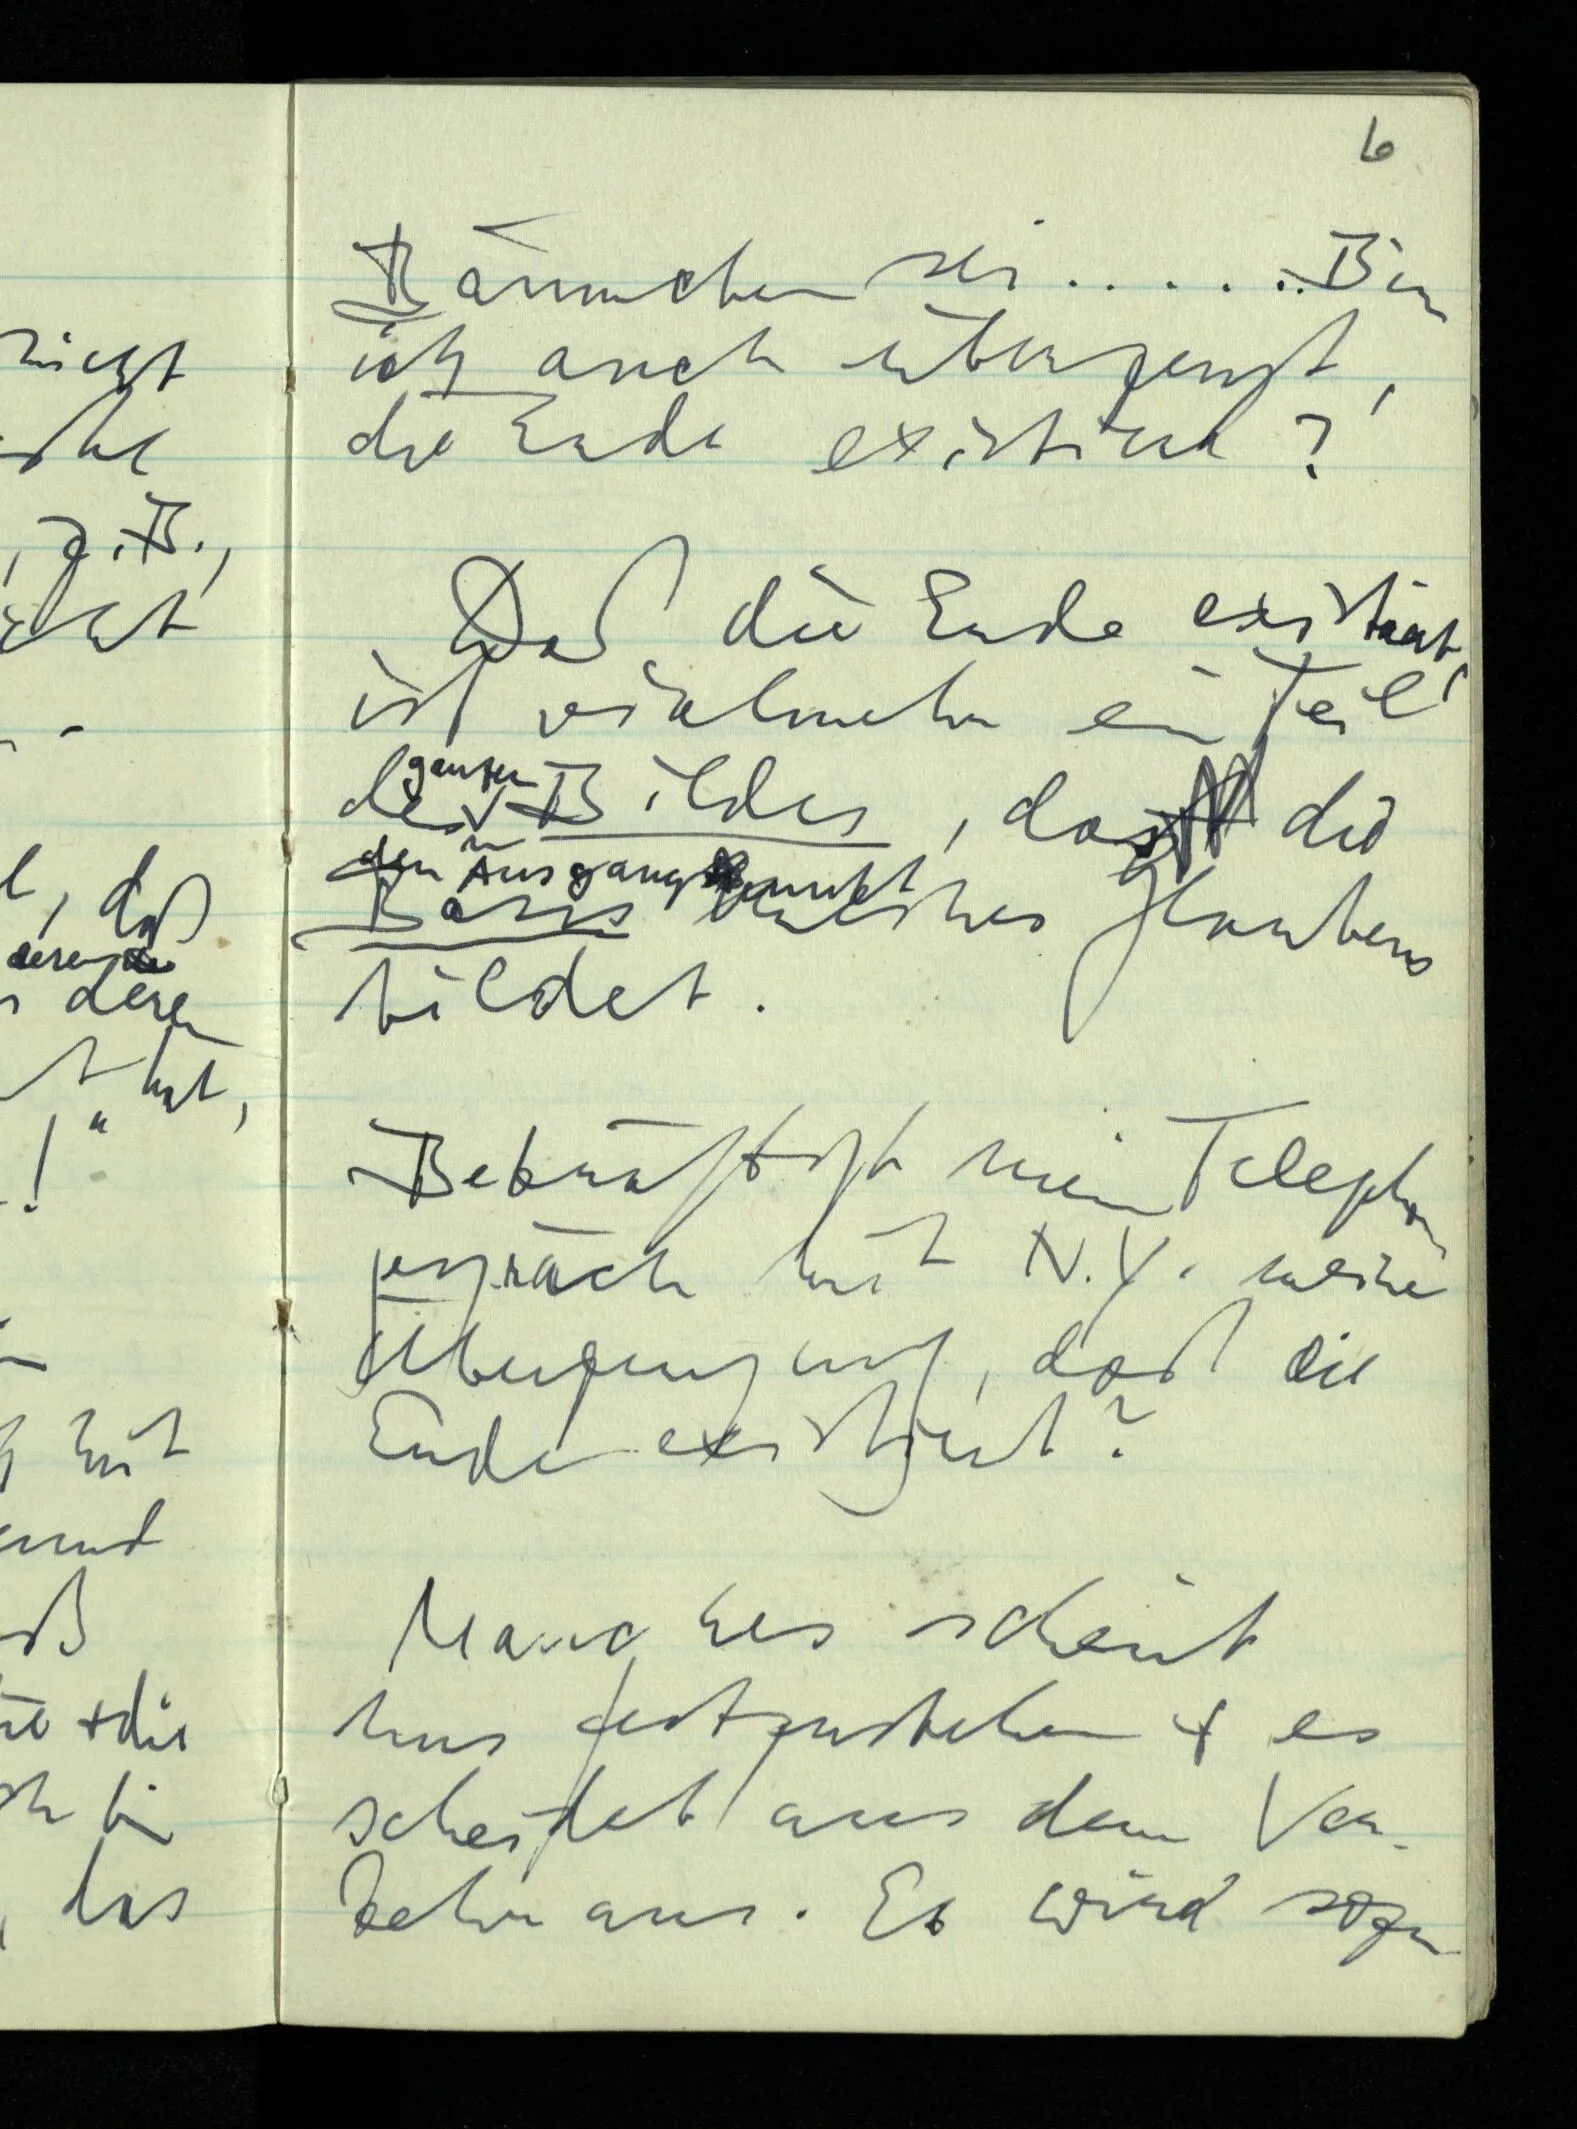 nicht
z.B.,
, daß
deren
deren
hat,
!"
mit
+ die
, das
6
Bäumchen sei . . . . . . Bin
ich auch überzeugt,
die Erde existiere?
Daß die Erde existiert,
ist vielmehr ein Teil
des ganzen Bildes, das die
den Ausgangspunkt
Basis meines Glaubens
bildet.
Bekräftigt mein Telephon
gespräch mit N.Y. meine
Überzeugung, daß die
Erde existiert?
Manches scheint
uns festzustehen + es
scheidet aus dem Ver-
kehr aus. Es wird sozu